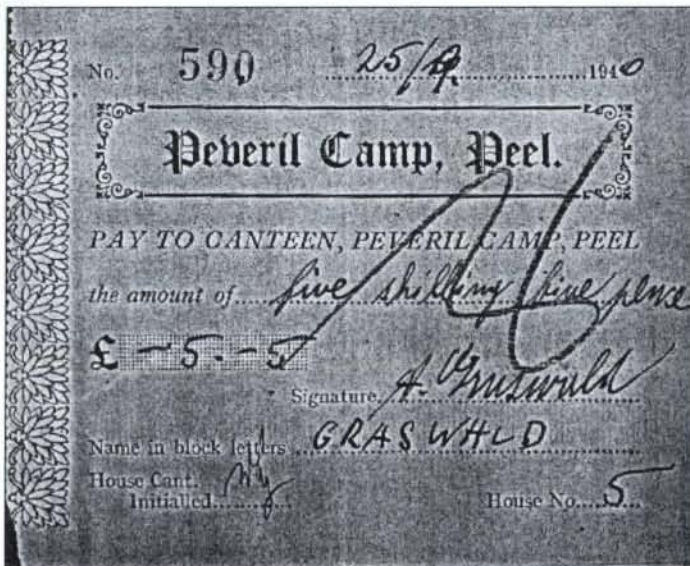 No. 590 25/9. 1940
Peveril Camp, Peel.
PAY TO CANTEEN, PEVERIL CAMP, PEEL
the amount of five shilling five pence
£ -5.-5
Signature A. Graswald
Name in block letters GRASWALD
House Cant.
Initialled
House No. 5